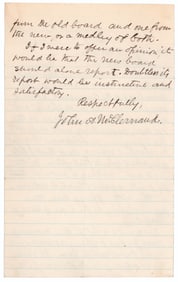 from the old board and one from
the new, or a medley of both.
If I were to offer an opinion, it
would be that the new board
should alone report. Doubtless its
report would be instructive and
satisfactory.
Respectfully,
John A McClernand.